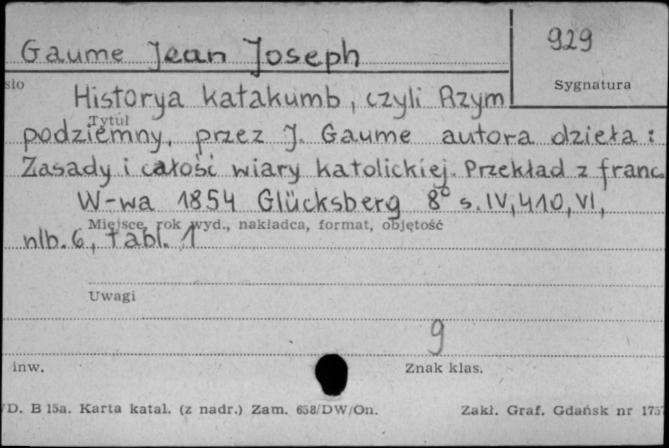 Gaume Jean Joseph
929
Sygnatura
sło
Historya katakumb, czyli Rzym
Tytuł
podziemny, przez J. Gaume autora dzieła:
Zasady i całość wiary katolickiej. Przekład z franc.
W-wa 1854 Glücksberg 8° s. IV, 410, VI,
Miejsce, rok wyd., nakładca, format, objętość
nlb. 6, tabl. 1
Uwagi
9
inw.
Znak klas.
D. B 15a. Karta katal. (z nadr.) Zam. 658/DW/On.
Zakł. Graf. Gdańsk nr 1757